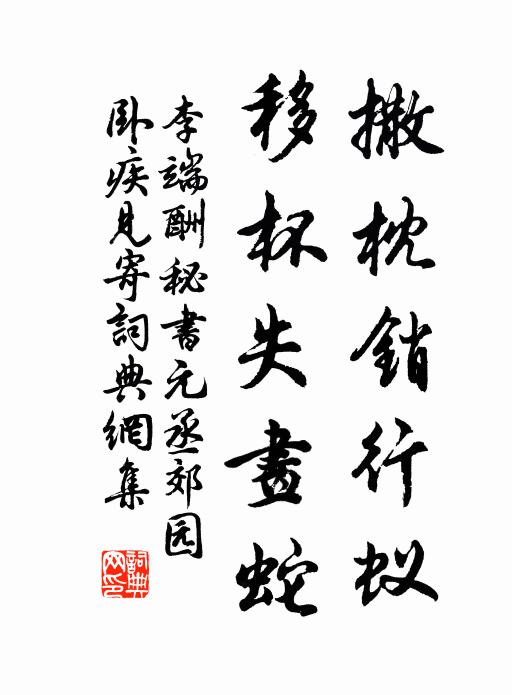 撒枕銷行蚁
移杯失畫蛇
李端酬秘書元丞郊园
卧疾見寄詞典網集
詞典
网印